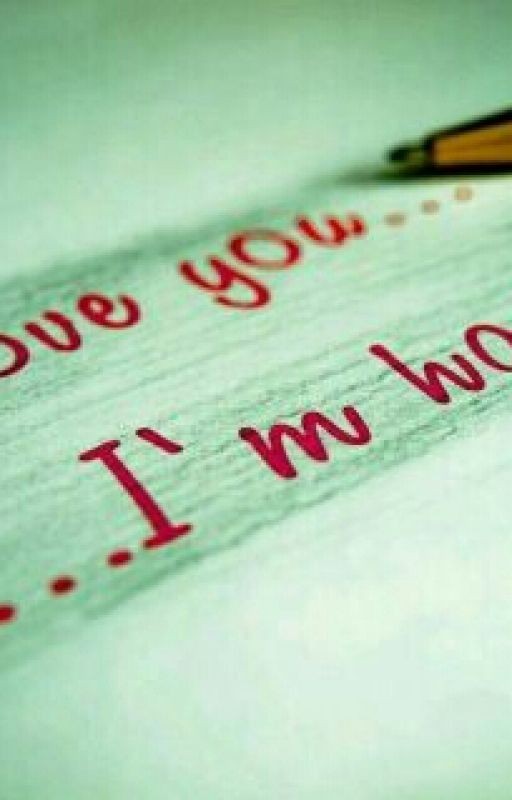 ove you...
...I`m wa